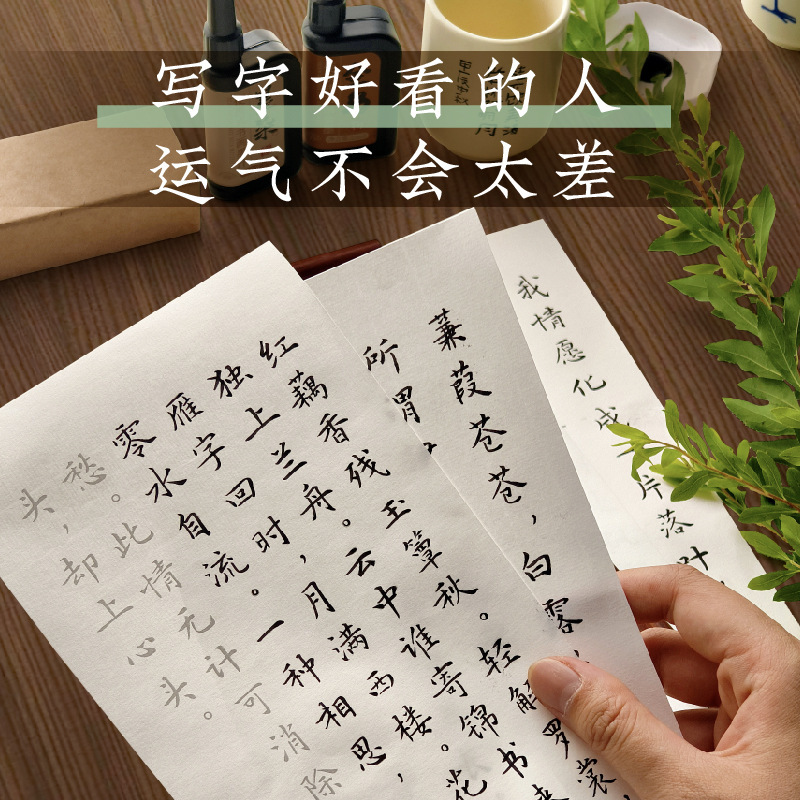 写字好看的人
运气不会太差
红藕香残玉簟秋。轻解罗裳,
独上兰舟。云中谁寄锦书来
雁字回时,月满西楼。花
零水自流。一种相思,
愁。此情无计可消除
头,却上心头。
蒹葭苍苍,白露
所谓
我情愿化成
片落叶